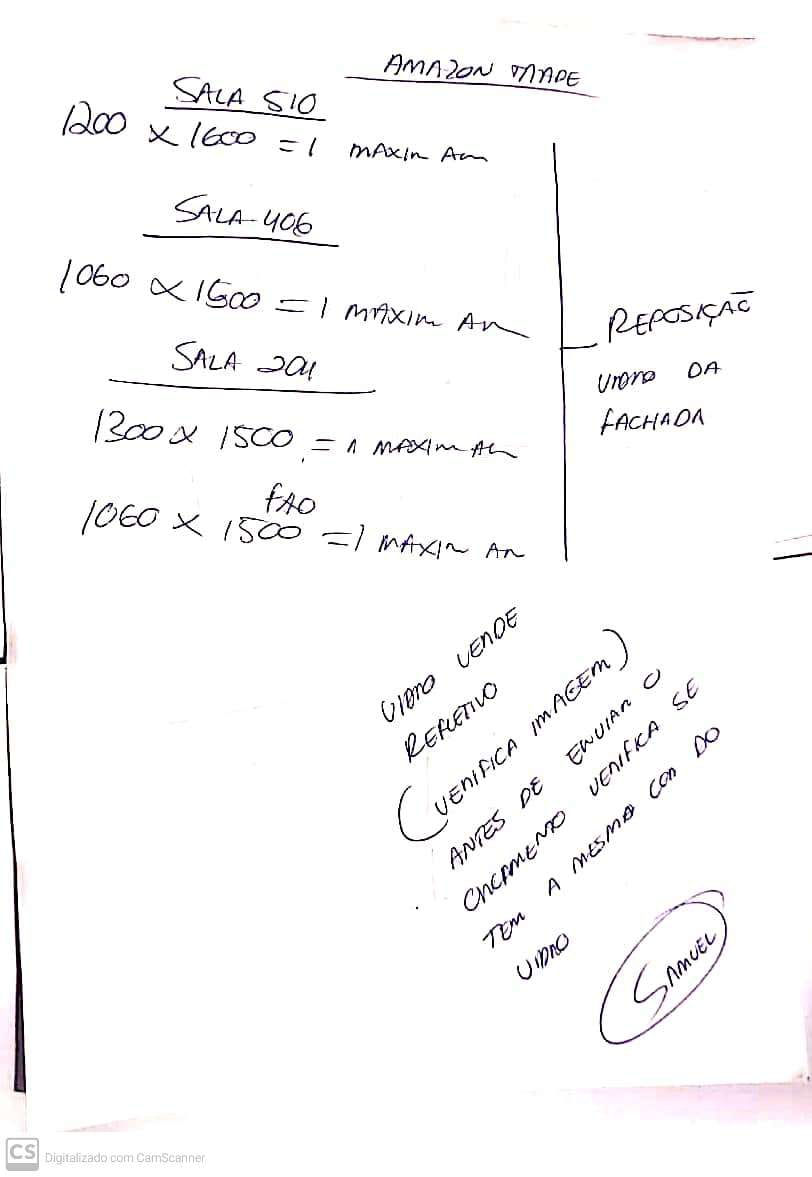 AMAZON TRADE
SALA 510
1200 x 1600 = 1 MAXIM AR
SALA 406
1060 x 1500 = 1 MAXIM AR
SALA 204
1300 x 1500 = 1 MAXIM AR
FAO
1060 x 1500 = 1 MAXIM AR
REPOSIÇÃO
VIDRO DA
FACHADA
VIDRO VERDE
REFLETIVO
(VERIFICA IMAGEM)
ANTES DE ENVIAR O
ORÇAMENTO VERIFICA SE
TEM A MESMA COR DO
VIDRO
SAMUEL
CS Digitalizado com CamScanner